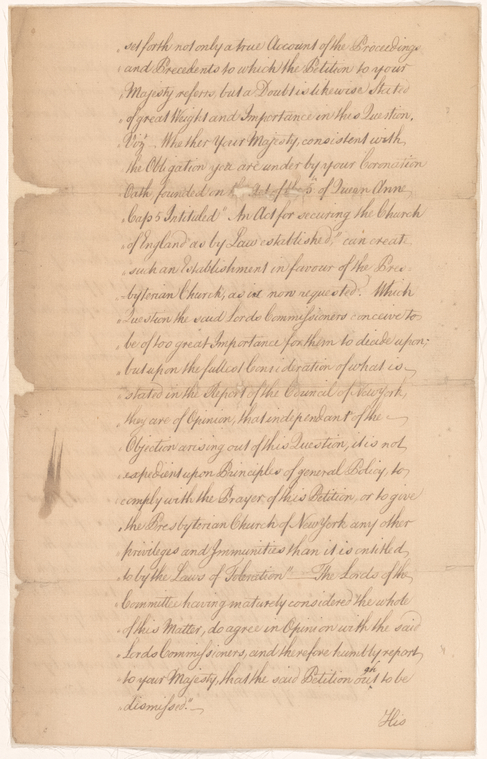 "set forth not only a true Account of the Proceedings
"and Precedents to which the Petition to your
"Majesty refers, but a Doubt is likewise Stated
"of great Weight and Importance in the Question,
"Viz.t Whether Your Majesty, consistent with
"the Obligation you are under by your Coronation
"Oath, founded on the Act of the 5th of Queen Anne
"Cap: 5 Intituled "An Act for securing the Church
"of England as by Law established," can create
"such an Establishment in favour of the Pres-
"byterian Church, as is now requested. Which
"Question the said Lords Commissioners conceive to
"be of too great Importance for them to decide upon;
"but upon the fullest Consideration of what is
"stated in the Report of the Council of New York,
"they are of Opinion, that independant of the
"Objection arising out of this Question, it is not
"expedient upon Principles of general Policy, to
"comply with the Prayer of this Petition, or to give
"the Presbyterian Church of New York any other
"priviledges and Immunities than it is entitled
"to by the Laws of Toleration" — The Lords of the
"Committee having maturely considered the whole
"of this Matter, do agree in Opinion with the said
"Lords Commissioners, and therefore humbly report
"to your Majesty, that the said Petition ought to be
"dismissed." —
His